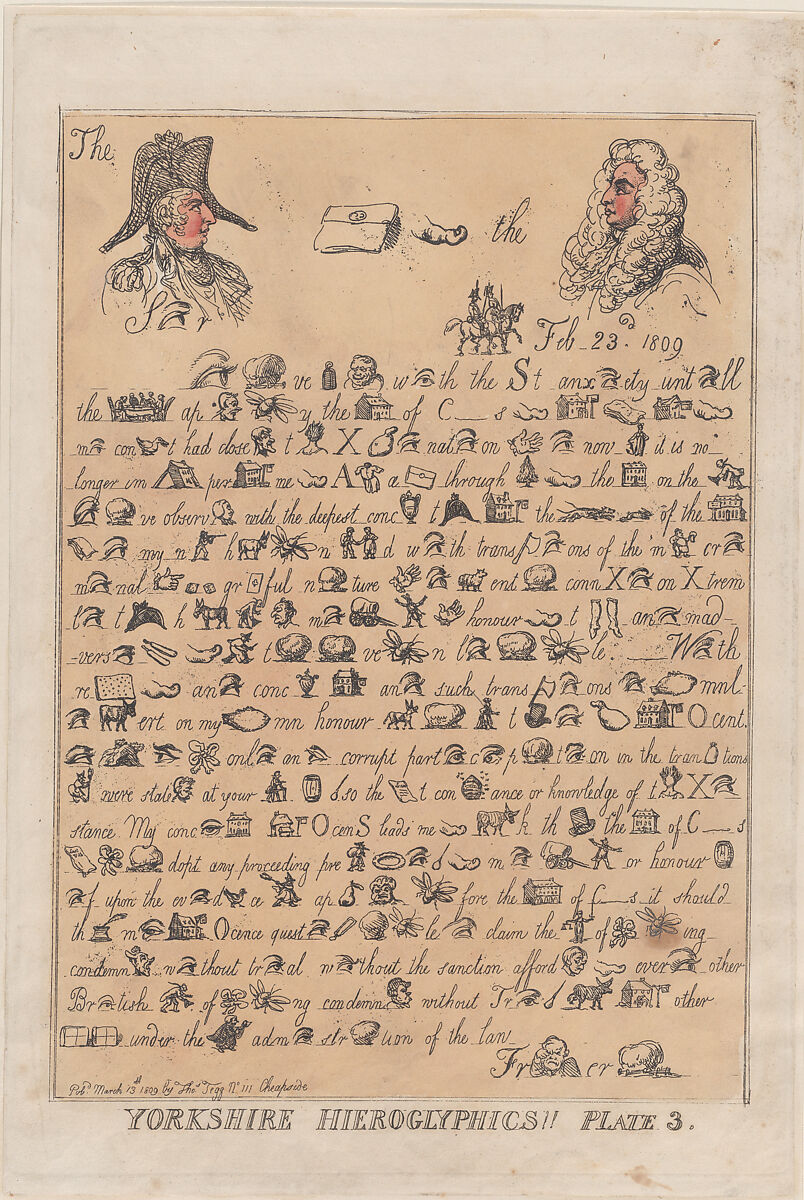 The
the
S r
Feb 23d. 1809
ve w th the St anx ety unt ll
the ap y the of C___s
m con t had close t X nat on now it is no
longer im per me A a through the on the
ve observ with the deepest conc t the of the
my n h n d w th trans ons of the m cr
m nal gr ful n ture ent conn X on Xtrem
l t h m honour t an mad-
vers t ve n l le. W th
re an conc an such trans ons mnl
ert on my mn honour t Ocent.
onl an corrupt part c p t on in the tran tions
were stat at your so the t con ance or knowledge of t X
stance. My conc OcenS leads me k th the of C___s
dopt any proceeding pre m or honour
f upon the ev d ce ap fore the of C___s it should
th m Ocence quest le claim the of ing
condemn w thout tr al. w thout the sanction afford ever other
Br tish of ng condemn without Tr other
under the adm str tion of the law
Fr er
Pubd March 13th 1809 by Thos Tegg No 111 Cheapside
YORKSHIRE HIEROGLYPHICS!! PLATE 3.